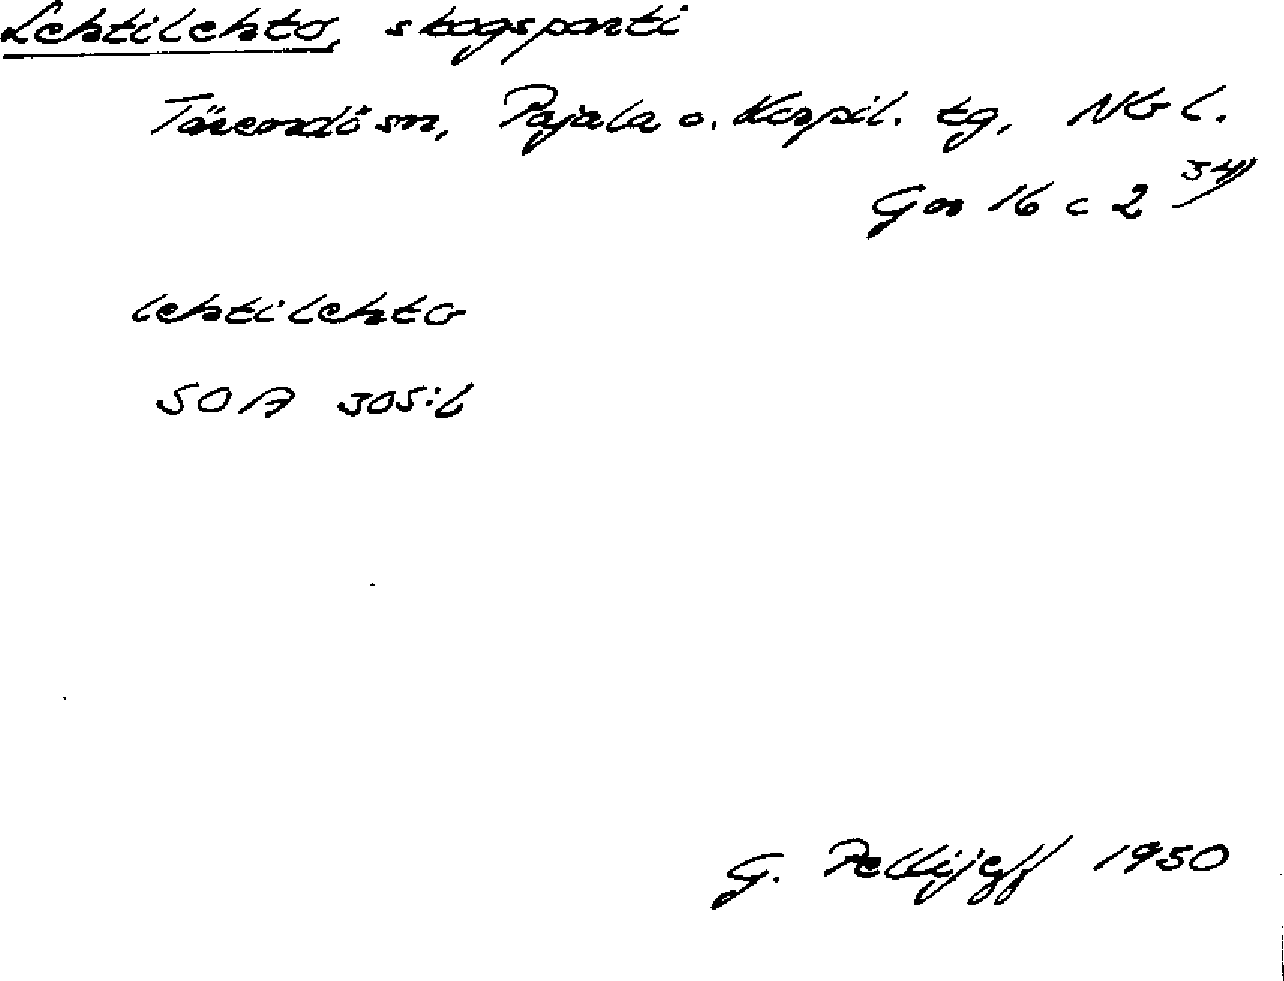 Lehtilehto, skogsparti
Tärendö sn, Pajala o. Korpil. tg, Nb l.
Gen 16 c 2 34)
lehtilehto
SOA 305:6
G. Pellijeff 1950